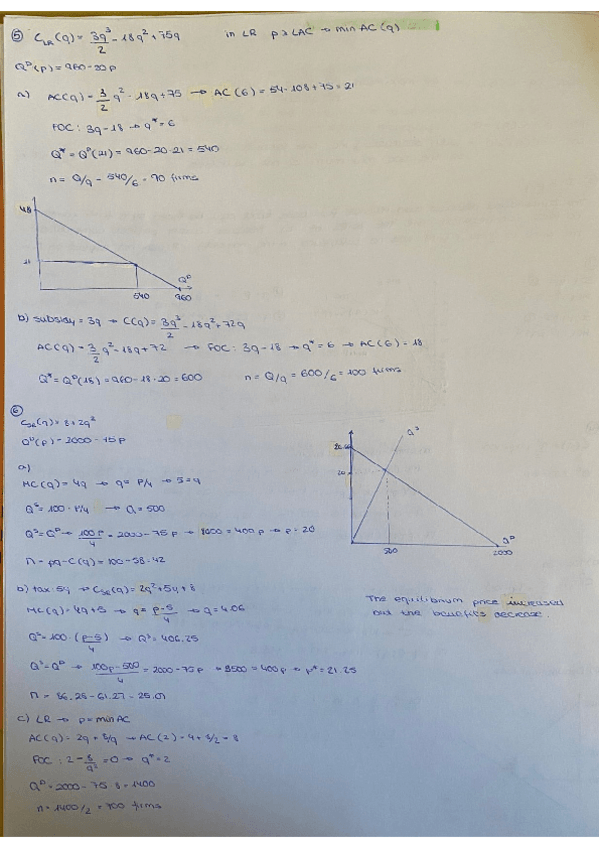 ⑤ C_LR(q) = 3q³/2 - 18q² + 75q in LR p = LAC → min AC(q)
Q^D(p) = 960 - 20p
a) AC(q) = 3/2 q² - 18q + 75 → AC(6) = 54 - 108 + 75 = 21
FOC: 3q - 18 → q* = 6
Q* = Q^D(21) = 960 - 20·21 = 540
n = Q/q = 540/6 = 90 firms
48
21
540
Q^D
960
b) subsidy = 3q → C(q) = 3q³/2 - 18q² + 72q
AC(q) = 3/2 q² - 18q + 72 → FOC: 3q - 18 → q* = 6 → AC(6) = 18
Q* = Q^D(18) = 960 - 18·20 = 600 n = Q/q = 600/6 = 100 firms
⑥
C_SR(q) = 8 + 2q²
Q^D(p) = 2000 - 75p
a)
MC(q) = 4q → q = P/4 → 5 = q
Q^S = 100 · P/4 → Q = 500
Q^S = Q^D → 100p/4 = 2000 - 75p → 8000 = 400p → p = 20
Π = pq - C(q) = 100 - 58 = 42
Q^S
20
500
Q^D
2000
b) tax 5q → C_SR(q) = 2q² + 5q + 8
MC(q) = 4q + 5 → q = p-5/4 → q = 4.06
Q^S = 100 (p-5)/4 → Q^S = 406.25
Q^S = Q^D → 100p-500/4 = 2000 - 75p → 8500 = 400p → p* = 21.25
Π = 86.28 - 61.27 = 25.01
The equilibrium price increases
but the benefits decrease.
c) LR → p = min AC
AC(q) = 2q + 8/q → AC(2) = 4 + 8/2 = 8
FOC: 2 - 8/q² = 0 → q* = 2
Q^D = 2000 - 75·8 = 1400
n = 1400/2 = 700 firms